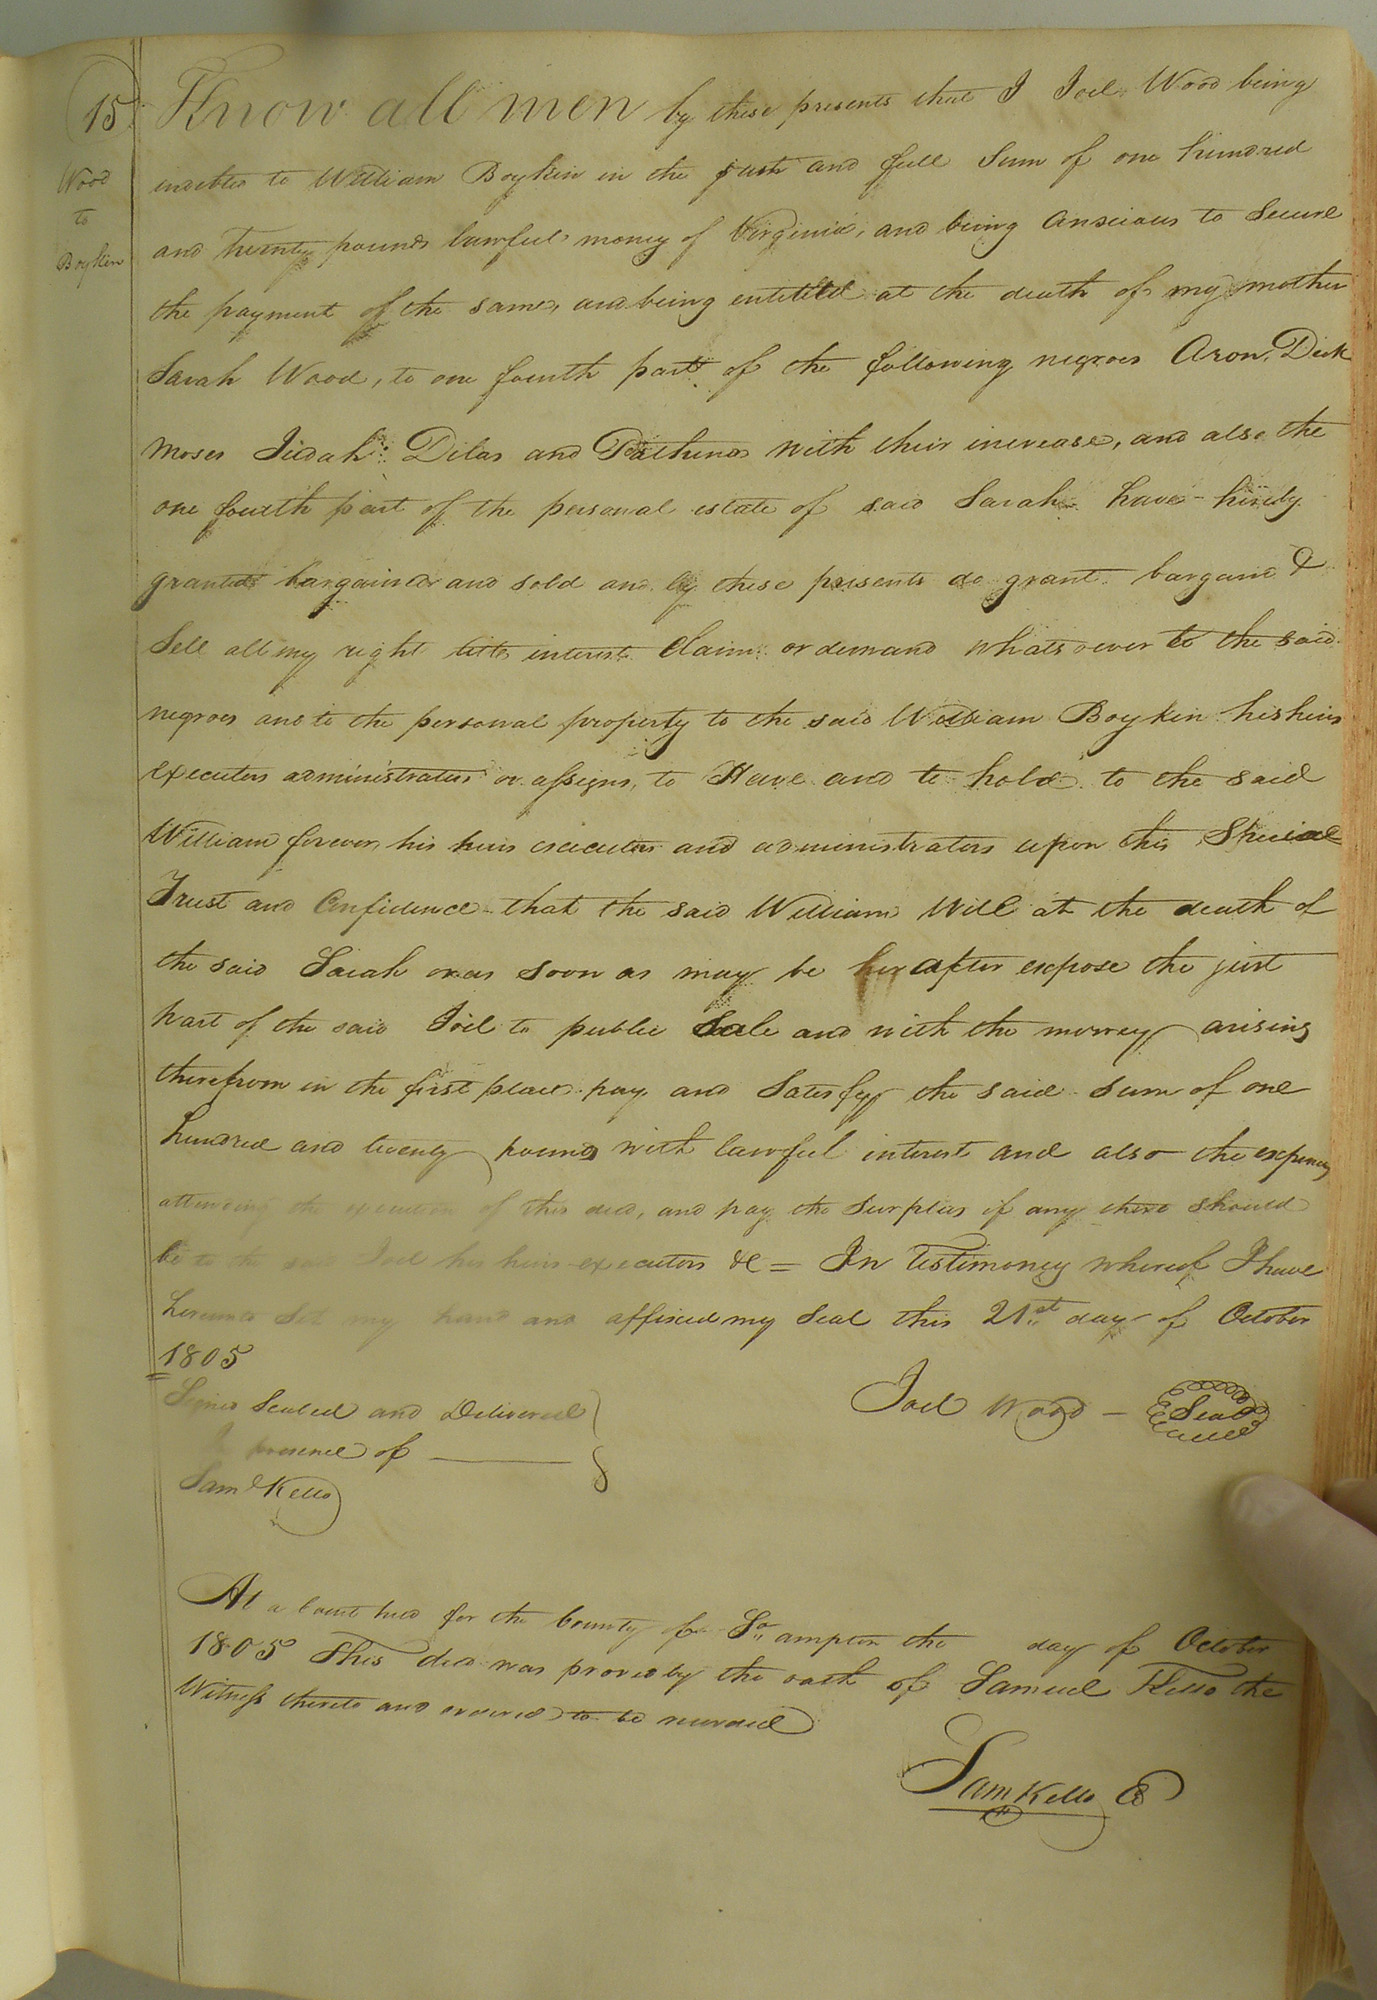 15
Wood
to
Boykin
Know all men by these presents that I Joel Wood being
indebted to William Boykin in the just and full Sum of one hundred
and twenty pounds lawful money of Virginia, and being anscious to Secure
the payment of the same, and being entitled at the death of my mother
Sarah Wood, to one fourth part of the following negroes Aron, Dick
Moses Jidah Dilas and with their increase, and also the
one fourth part of the personal estate of said Sarah have hereby
granted bargained and sold and by these presents do grant bargain &
Sell all my right title interest Claim or demand whatsoever to the said
negroes and to the personal property to the said William Boykin his heirs
executors administrators or assigns, to Have and to hold to the said
William forever his heirs executors and administrators upon this Special
Trust and Confidence that the said William Will at the death of
the said Sarah or as soon as may be hereafter expose the just
part of the said Joel to public Sale and with the money arising
therefrom in the first place pay and Satisfy the said sum of one
hundred and twenty pounds with lawful interest and also the expences
attending the execution of this deed, and pay the Surplus if any there should
be to the said Joel his heirs executors &c = In Testimony whereof I have
hereunto Set my hand and affixed my Seal this 21st day of October
1805
Signed Sealed and Delivered
In presence of
Saml Kello
Joel Wood — Seal
At a Court held for the County of So ampton the day of October
1805 This deed was proved by the oath of Samuel Kello the
Witness thereto and ordered to be recorded
Sam Kello